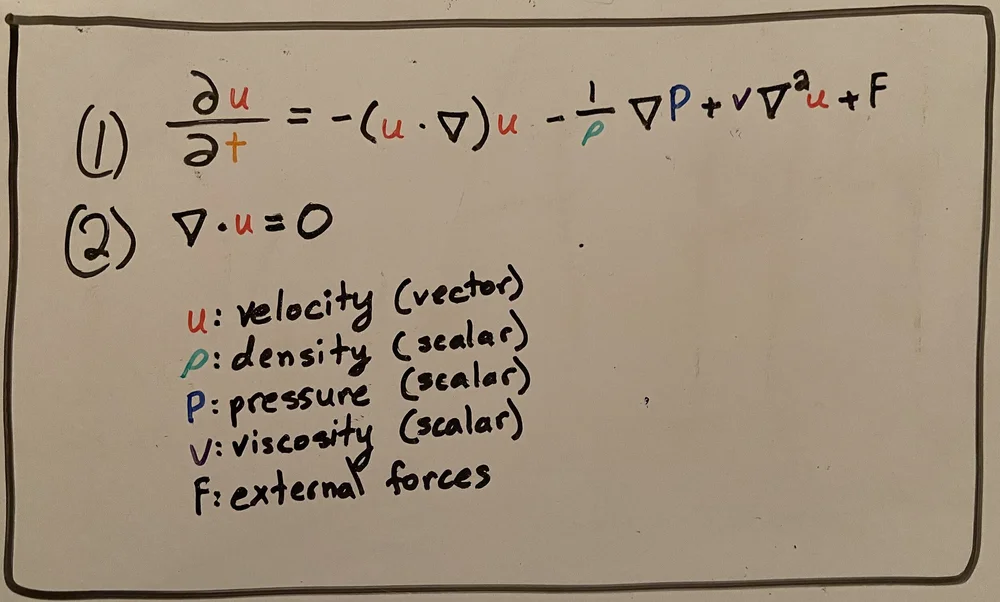 (1) ∂u/∂t = -(u · ∇)u - 1/ρ ∇P + ν∇²u + F
(2) ∇ · u = 0
u: velocity (vector)
ρ: density (scalar)
P: pressure (scalar)
ν: viscosity (scalar)
F: external forces